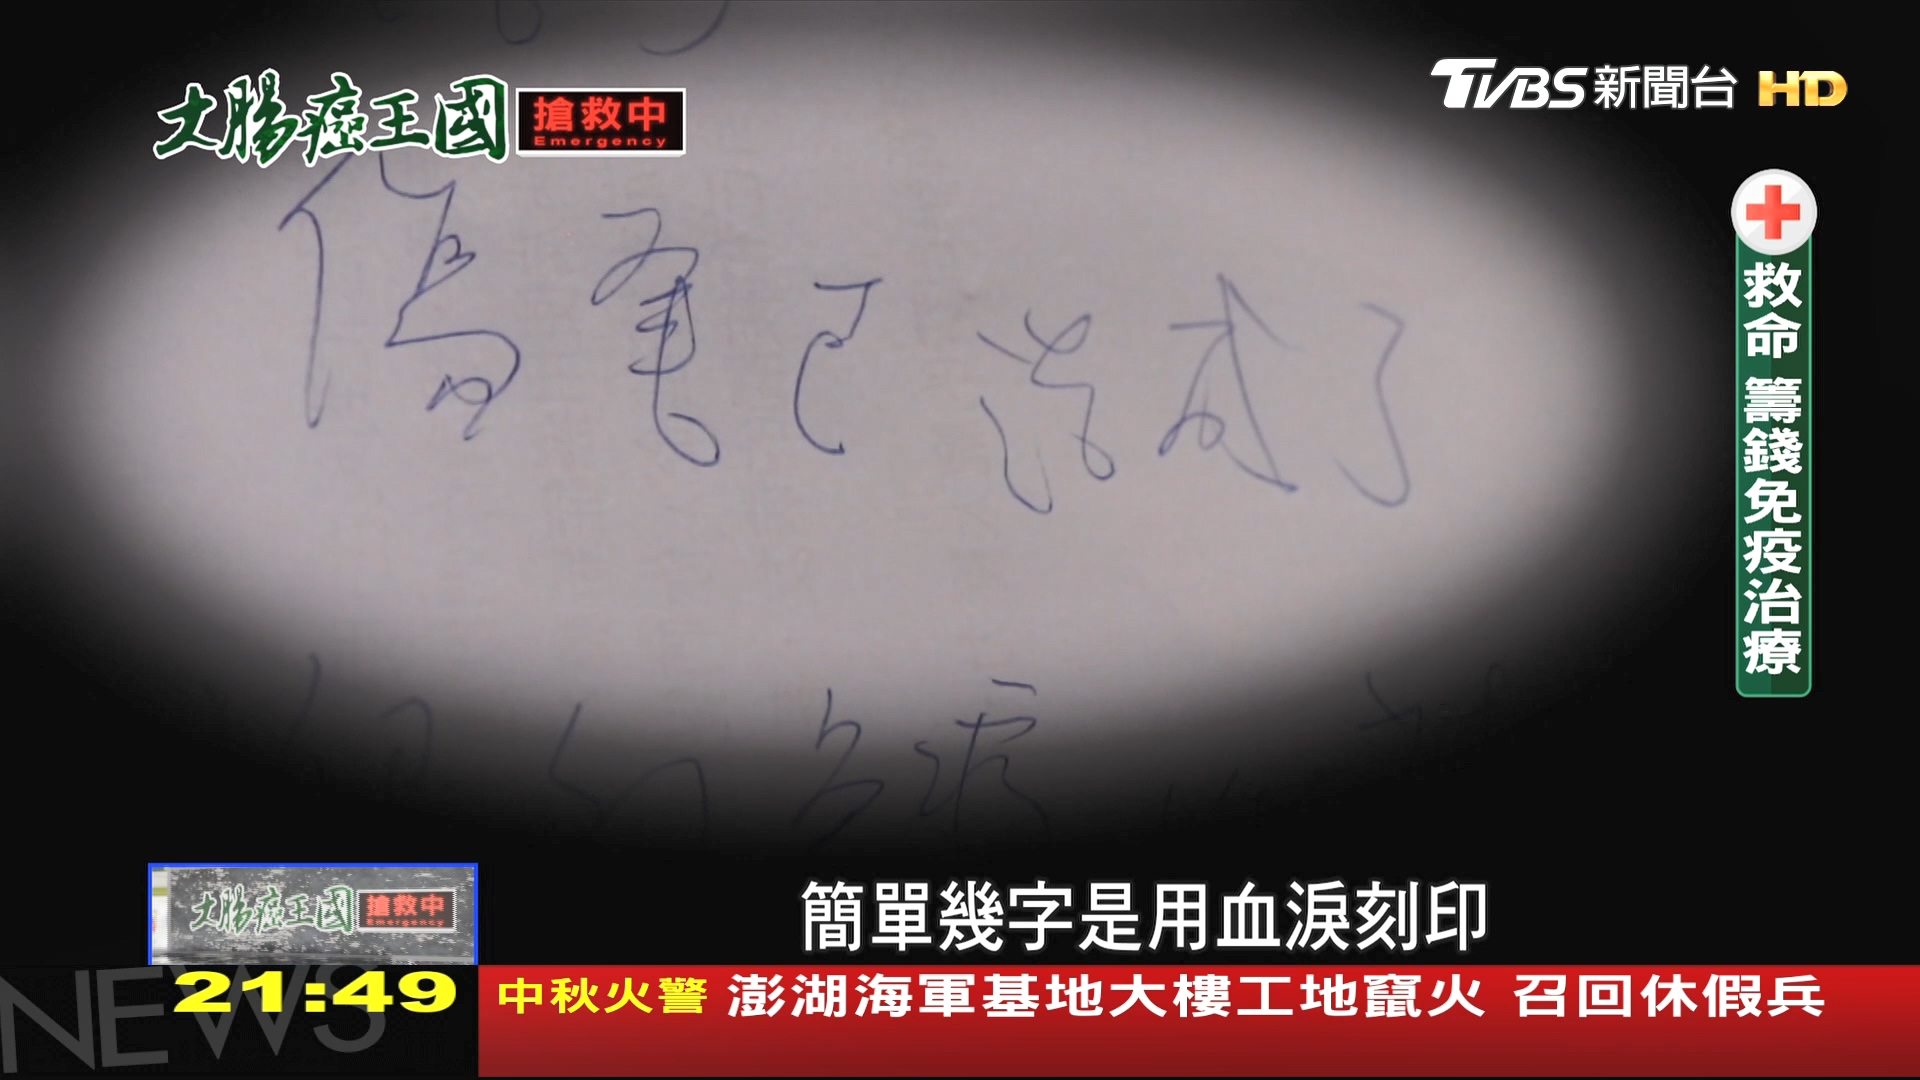 TVBS新聞台 HD
大腸癌王國 搶救中
Emergency
傷害已造成了
救命 籌錢免疫治療
簡單幾字是用血淚刻印
大腸癌王國 搶救中
Emergency
NEWS
21:49
中秋火警 澎湖海軍基地大樓工地竄火 召回休假兵